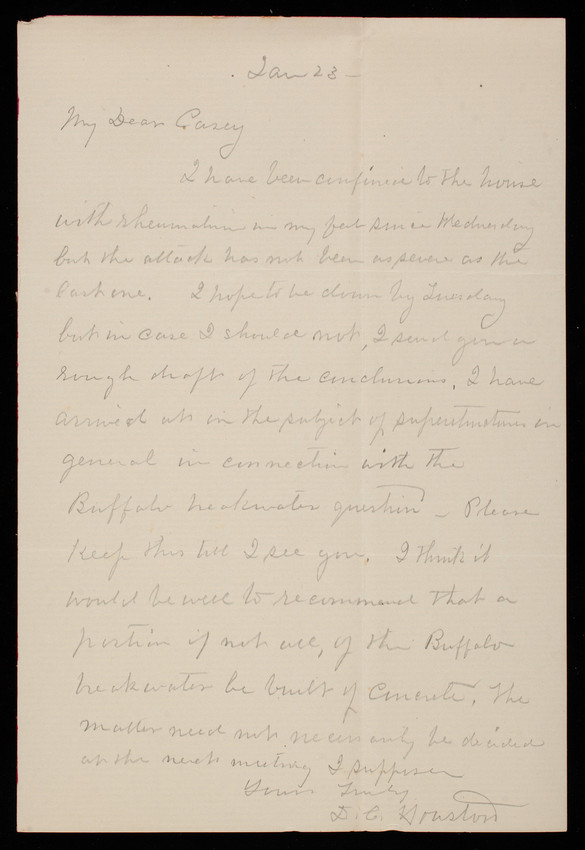 Jan 23 -
My Dear Casey
I have been confined to the house
with rheumatism in my feet since Wednesday
but the attack has not been as severe as the
last one. I hope to be down by Tuesday
but in case I should not, I send you a
rough draft of the conclusions, I have
arrived at in the subject of superstructures in
general in connection with the
Buffalo breakwater question - Please
keep this till I see you. I think it
would be well to recommend that a
portion if not all, of the Buffalo
breakwater be built of concrete. The
matter need not necessarily be decided
at the next meeting I suppose
Yours Truly
D. C. Houston